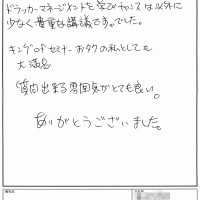 ドラッカーマネージメントを学ぶチャンスは以外に
少なく貴重な講議です。でした。
キングofセミナーおタクの私としても
大満足
質問出来る雰囲気がとても良い。
ありがとうございました。